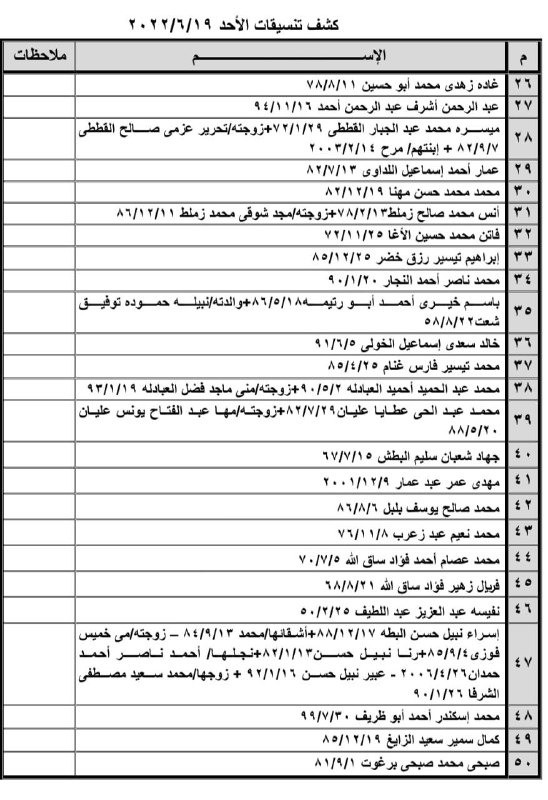 كشف تنسيقات الأحد ٢٠٢٢/٦/١٩
م الإســـــم ملاحظات
٢٦ غاده زهدى محمد أبو حسين ٧٨/٨/١١
٢٧ عبد الرحمن أشرف عبد الرحمن أحمد ٩٤/١١/١٦
٢٨ ميسره محمد عبد الجبار القططى ٧٢/١/٢٩+زوجته/تحرير عزمى صالح القططى
٨٢/٩/٧ + إبنتهم/ مرح ٢٠٠٣/٢/١٤
٢٩ عمار أحمد إسماعيل اللداوى ٨٢/٧/١٣
٣٠ محمد محمد حسن مهنا ٨٢/١٢/١٩
٣١ أنس محمد صالح زملط٧٨/٢/١٣+زوجته/مجد شوقى محمد زملط ٨٦/١٢/١١
٣٢ فاتن محمد حسين الأغا ٧٢/١١/٢٥
٣٣ إبراهيم تيسير رزق خضر ٨٥/١٢/٢٥
٣٤ محمد ناصر أحمد النجار ٩٠/١/٢٠
٣٥ باسم خيرى أحمد أبو رتيمه٨٦/٥/١٨+والدته/نبيله حموده توفيق
شعت٥٨/٨/٢٢
٣٦ خالد سعدى إسماعيل الخولى ٩١/٦/٥
٣٧ محمد تيسير فارس غنام ٨٥/٤/٢٥
٣٨ محمد عبد الحميد أحميد العبادله ٩٠/٥/٢+زوجته/منى ماجد فضل العبادله ٩٣/١/١٩
٣٩ محمد عبد الحى عطايا عليان٨٢/٧/٢٩+زوجته/مها عبد الفتاح يونس عليان
٨٨/٥/٢٠
٤٠ جهاد شعبان سليم البطش ٦٧/٧/١٥
٤١ مهدى عمر عبد عمار ٢٠٠١/١٢/٩
٤٢ محمد صالح يوسف بلبل ٨٦/٨/٦
٤٣ محمد نعيم عبد زعرب ٧٦/١١/٨
٤٤ محمد عصام أحمد فؤاد ساق الله ٧٠/٧/٥
٤٥ فريال زهير فؤاد ساق الله ٦٨/٨/٢١
٤٦ نفيسه عبد العزيز عبد اللطيف ٥٠/٢/٢٥
٤٧ إسراء نبيل حسن البطه ٨٨/١٢/١٧+أشقائها/محمد ٨٤/٩/١٣ – زوجته/مى خميس
فوزى٨٥/٩/٤+رنا نبيل حسن٨٢/١/١٣+نجلها/ أحمد ناصر أحمد
حمدان٢٠٠٦/٤/٢٦ - عبير نبيل حسن ٩٢/١/١٦ + زوجها/محمد سعيد مصطفى
الشرفا ٩٠/١/٢٦
٤٨ محمد إسكندر أحمد أبو ظريف ٩٩/٧/٣٠
٤٩ كمال سمير سعيد الزايغ ٨٥/١٢/١٩
٥٠ صبحى محمد صبحى برغوت ٨١/٩/١